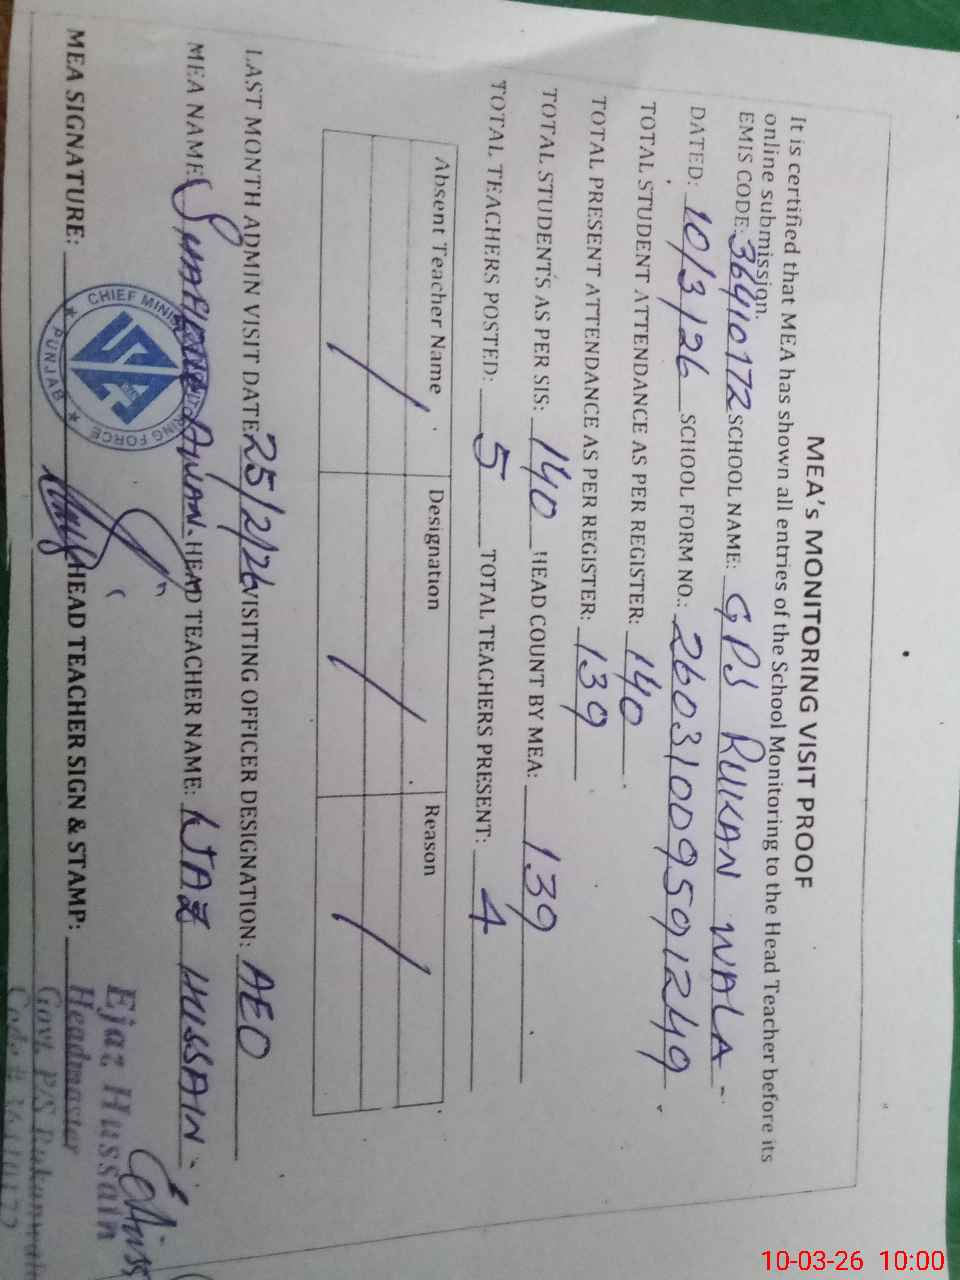 MEA's MONITORING VISIT PROOF
It is certified that MEA has shown all entries of the School Monitoring to the Head Teacher before its
online submission.
EMIS CODE: 36410172 SCHOOL NAME: GPS RUKAN WALA
DATED: 10/3/26 SCHOOL FORM NO.: 2603100959 1249
TOTAL STUDENT ATTENDANCE AS PER REGISTER: 140
TOTAL PRESENT ATTENDANCE AS PER REGISTER: 139
TOTAL STUDENT'S AS PER SIS: 140 HEAD COUNT BY MEA: 139
TOTAL TEACHERS POSTED: 5 TOTAL TEACHERS PRESENT: 4
Absent Teacher Name Designation Reason
/ / /
LAST MONTH ADMIN VISIT DATE 25/2/26 VISITING OFFICER DESIGNATION: AEO
MEA NAME AWAN. HEAD TEACHER NAME: IJAZ HUSSAIN
MEA SIGNATURE: HEAD TEACHER SIGN & STAMP:
CHIEF MINISTER MONITORING FORCE
★ PUNJAB ★
Ejaz Hussain
Headmaster
Govt. P/S
Code # 36410172
10-03-26 10:00